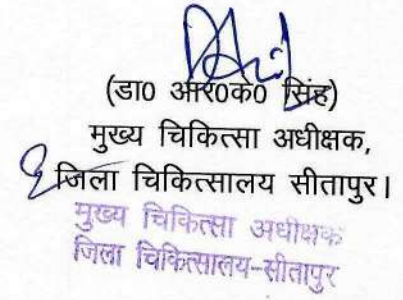 (डा0 आर0के0 सिंह)
मुख्य चिकित्सा अधीक्षक,
जिला चिकित्सालय सीतापुर।
मुख्य चिकित्सा अधीक्षक
जिला चिकित्सालय-सीतापुर